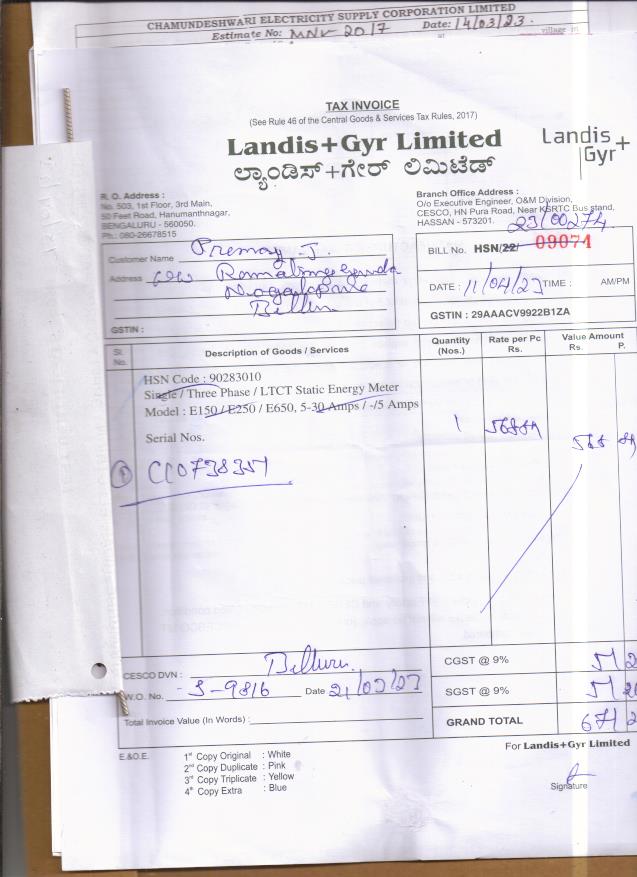 CHAMUNDESHWARI ELECTRICITY SUPPLY CORPORATION LIMITED
Estimate No: MNV 2017 Date: 14/03/23.
village in
TAX INVOICE
(See Rule 46 of the Central Goods & Services Tax Rules, 2017)
Landis+Gyr Limited
Landis+
Gyr
ಲ್ಯಾಂಡಿಸ್+ಗೇರ್ ಲಿಮಿಟೆಡ್
R. O. Address :
No. 503, 1st Floor, 3rd Main,
50 Feet Road, Hanumanthnagar,
BENGALURU - 560050.
Ph.: 080-26678515
Branch Office Address :
O/o Executive Engineer, O&M Division,
CESCO, HN Pura Road, Near KSRTC Bus stand,
HASSAN - 573201.
23/00274
Customer Name
Address
GSTIN :
BILL No. HSN/22/ 09071
DATE : 11/04/23 TIME : AM/PM
GSTIN : 29AAACV9922B1ZA
Sl. No. Description of Goods / Services Quantity (Nos.) Rate per Pc Rs. Value Amount Rs. P.
HSN Code : 90283010
Single / Three Phase / LTCT Static Energy Meter
Model : E150 / E250 / E650, 5-30 Amps / -/5 Amps
1
Serial Nos.
CESCO DVN : Billuru
W.O. No. S-9816 Date 21/03/23
Total Invoice Value (In Words) :
CGST @ 9% 51
SGST @ 9% 51
GRAND TOTAL 671
E.&O.E.
1st Copy Original : White
2nd Copy Duplicate : Pink
3rd Copy Triplicate : Yellow
4th Copy Extra : Blue
For Landis+Gyr Limited
Signature